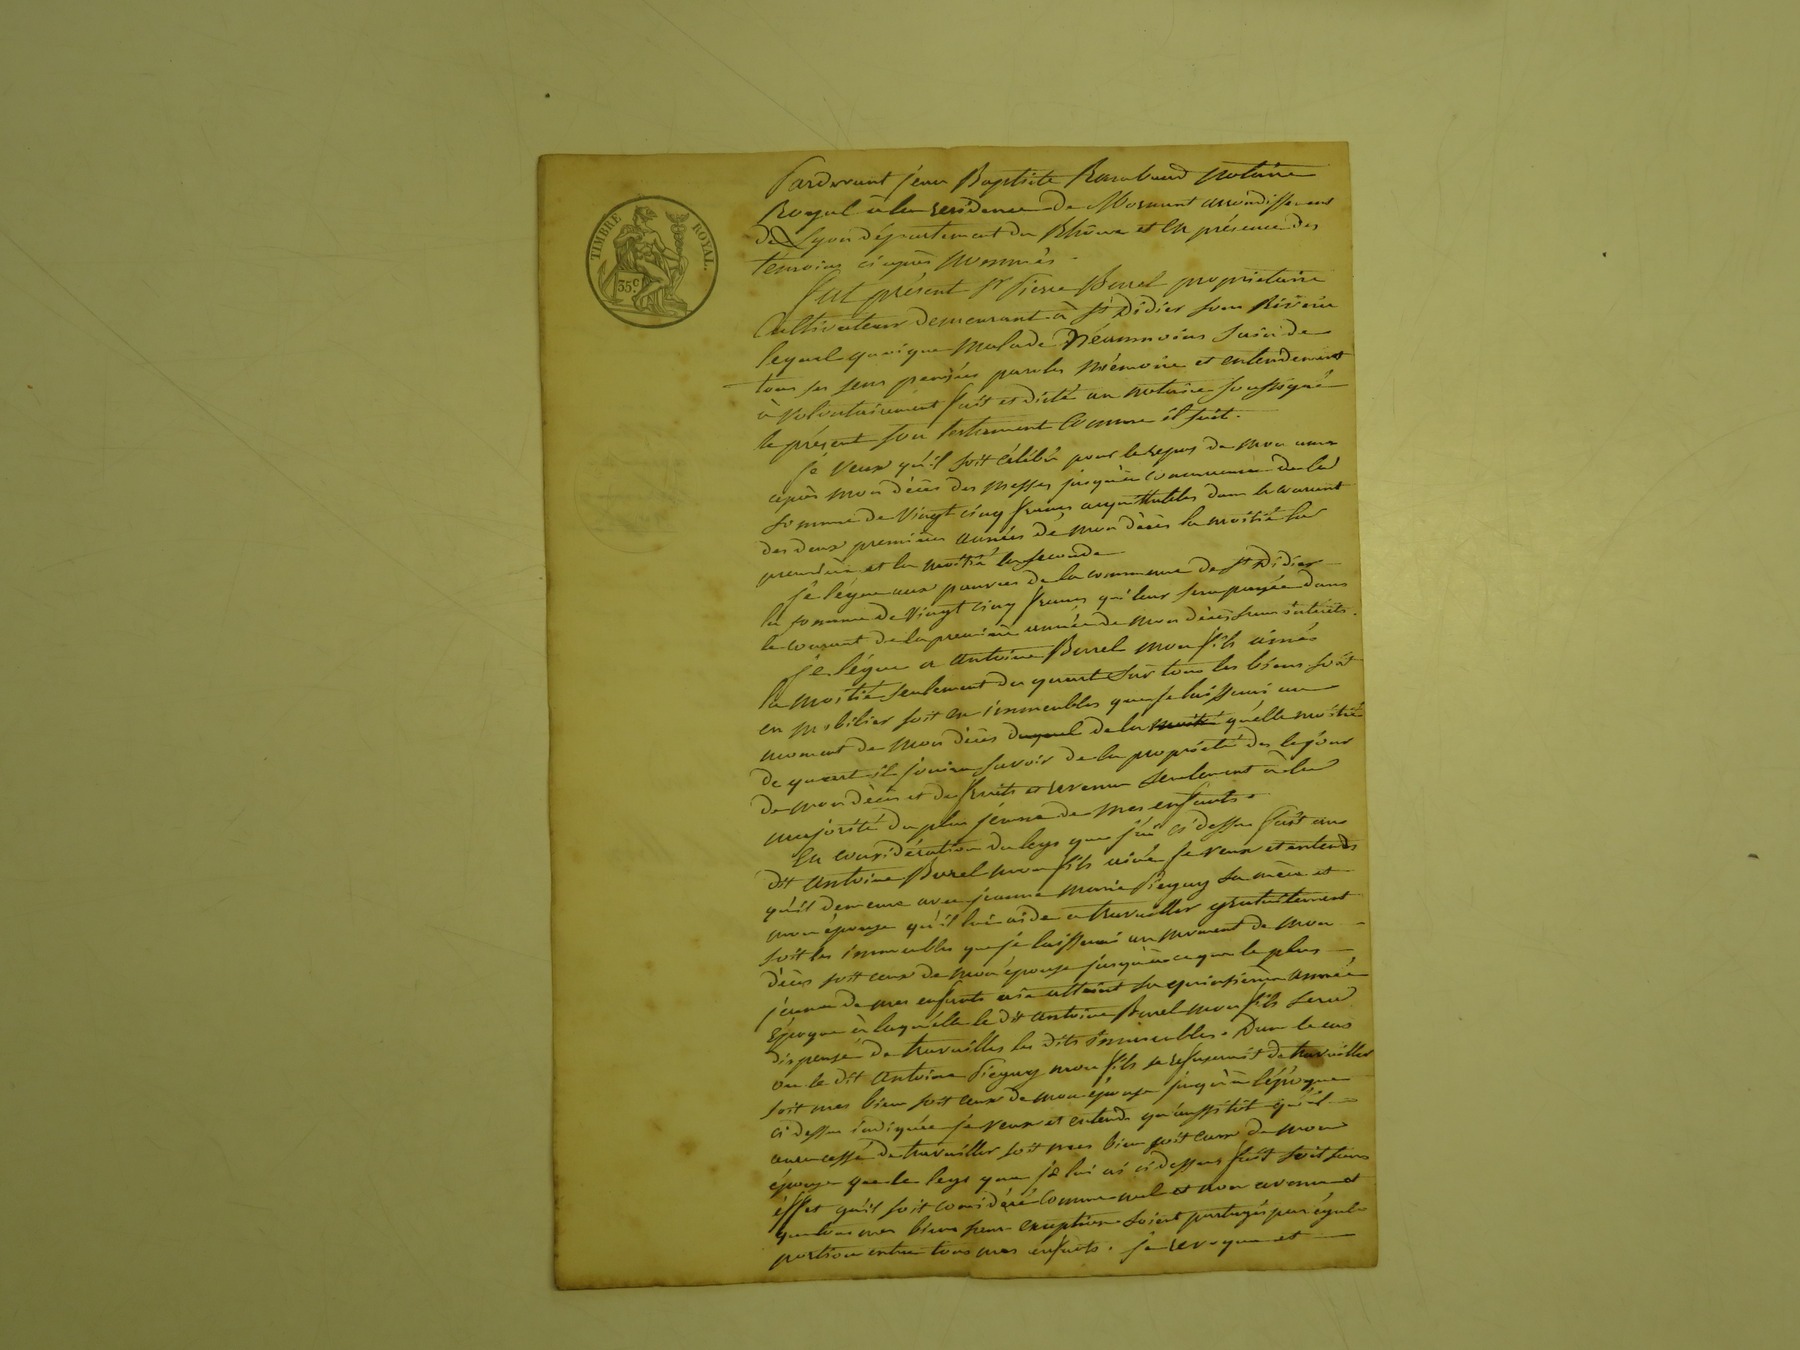 TIMBRE ROYAL.
35 c.
Pardevant jean Baptiste Rambaud notaire
Royal à la residence de Mornant arrondissement
de Lyon département du Rhône et en présence des
temoins ci après nommés.
fut présent Sr Pierre Borel propriétaire
Cultivateur demeurant à St Didier sous Riverie
lequel quoique malade Néanmoins sain de
tous ses sens pensées paroles mémoire et entendement
à volontairement fait et dicté au notaire soussigné
le présent son testament comme il suit.
je veux qu'il soit célébré pour le repos de mon ame
après mon décès des messes jusqu'à concurrence de la
somme de vingt cinq francs acquittables dans le courant
des deux premières années de mon décès la moitié la
première et la moitié la seconde
je légue aux pauvres de la commune de St Didier
la somme de vingt cinq francs qui leur sera payée dans
le courant de la première année de mon décès sans intérêts.
je légue a antoine Borel mon fils ainé
la moitié seulement du quart sur tous les biens soit
en mobilier soit en immeubles que je laisserai au
moment de mon décès duquel de la moitié qu'elle moitié
de quart il jouira savoir de la propriété dès le jour
de mon décès et de fruits et revenus seulement à la
majorité du plus jeune de mes enfants.
En considération du legs que j'ai ci dessus fait au
dit antoine Borel mon fils ainé je veux et entends
qu'il demeure avec jeanne marie Pieguy sa mère et
mon épouse qu'il lui aide a travailler gratuitement
soit les immeubles que je laisserai au moment de mon
décès soit ceux de mon épouse jusqu'à ce que le plus
jeune de mes enfants aie atteint sa quinzième année
époque à laquelle le dit antoine Borel mon fils sera
dispensé de travailler les dits immeubles. Dans le cas
ou le dit antoine Pieguy mon fils se refuserait de travailler
soit mes biens soit ceux de mon épouse jusqu'à l'époque
ci dessus indiquée je veux et entends qu'aussitôt qu'il
aura cessé de travailler soit mes biens soit ceux de mon
épouse que le legs que je lui ai ci dessus fait soit sans
éffet qu'il soit considéré comme nul et non avenu et
que tous mes biens sans exception soient partagés par égale
portion entre tous mes enfants. je revoque et